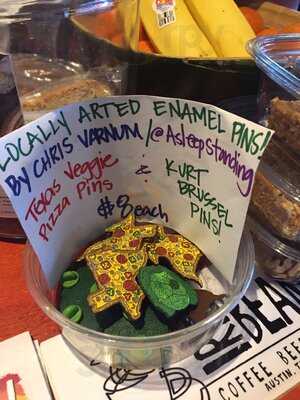 LOCALLY ARTED ENAMEL PINS!
BY CHRIS VARNUM/@Asleepstanding
Texas Veggie
Pizza Pins
&
KURT
BRUSSEL
PINS!
$8 each
IRON BEAR
COFFEE BEER
AUSTIN, T